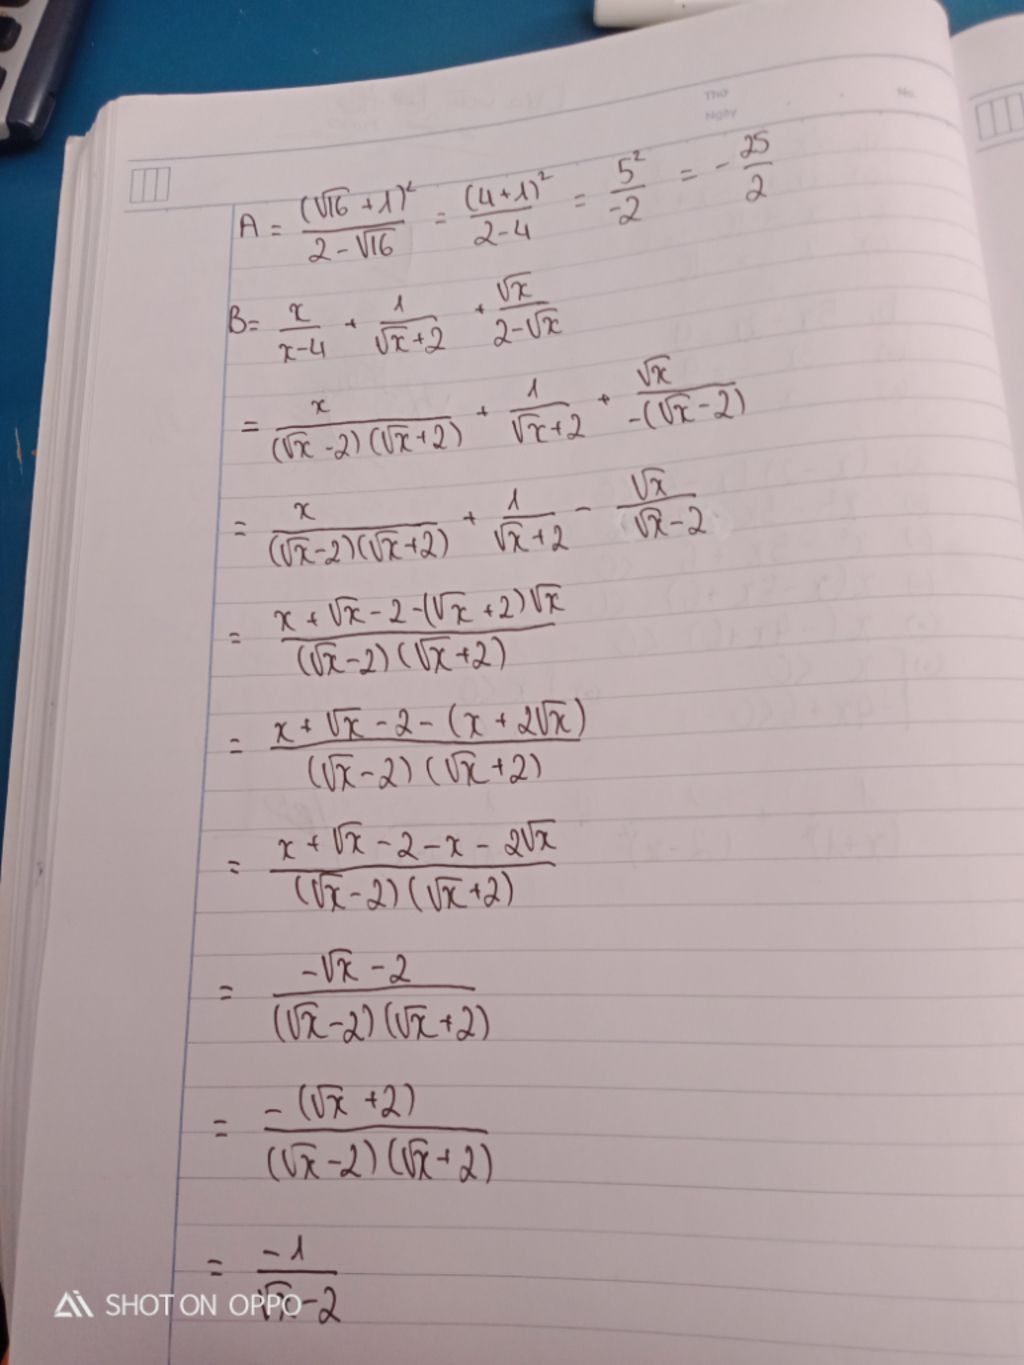 Thứ
Ngày
No.
A = (√16 + 1)² / (2 - √16) = (4+1)² / (2-4) = 5² / -2 = - 25/2
B = x/(x-4) + 1/(√x+2) + √x/(2-√x)
= x/((√x-2)(√x+2)) + 1/(√x+2) + √x/(-(√x-2))
= x/((√x-2)(√x+2)) + 1/(√x+2) - √x/(√x-2)
= (x + √x - 2 - (√x + 2)√x) / ((√x-2)(√x+2))
= (x + √x - 2 - (x + 2√x)) / ((√x-2)(√x+2))
= (x + √x - 2 - x - 2√x) / ((√x-2)(√x+2))
= (-√x - 2) / ((√x-2)(√x+2))
= -(√x + 2) / ((√x-2)(√x+2))
= -1 / (√x-2)
SHOT ON OPPO